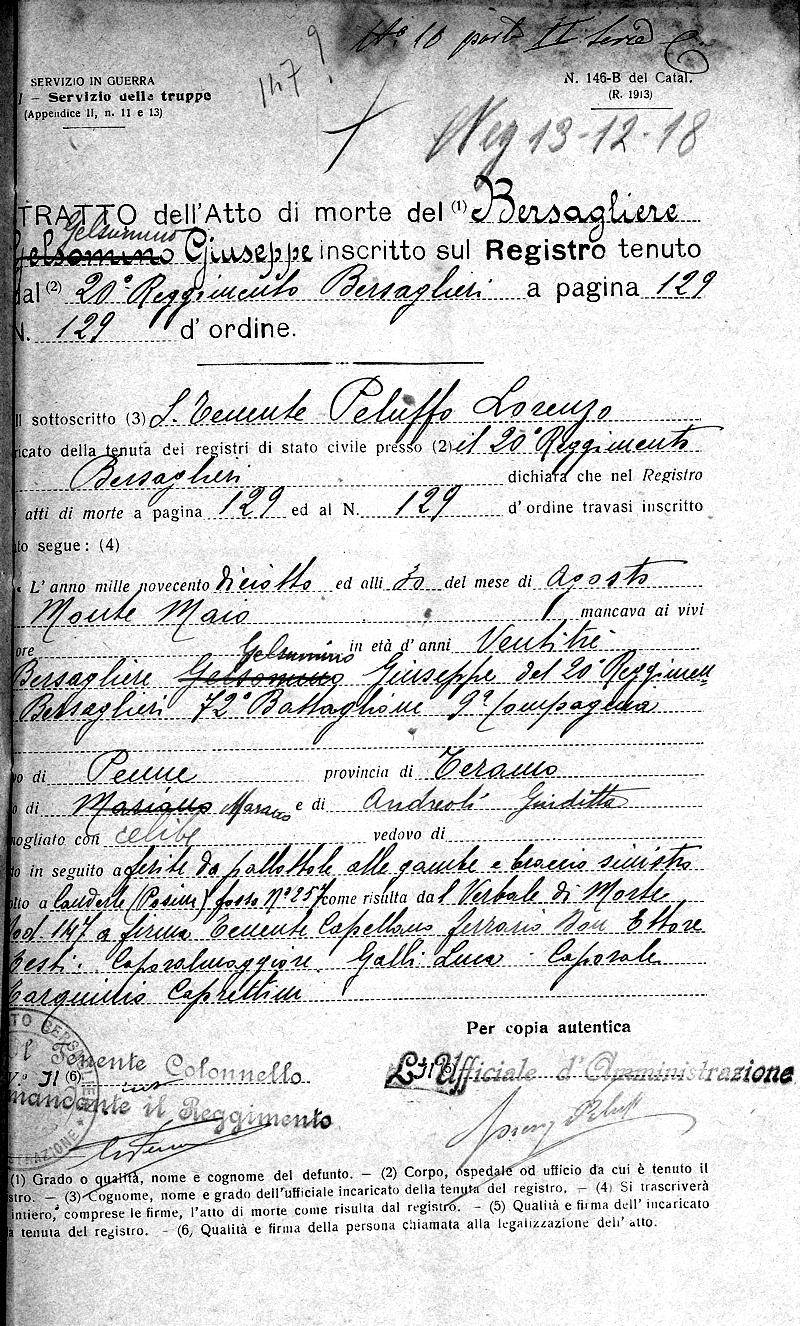 N° 10 parte II Serie C.
147
SERVIZIO IN GUERRA
I – Servizio delle truppe
(Appendice II, n. 11 e 13)
N. 146-B del Catal.
(R. 1913)
Neg 13-12-18
TRATTO dell'Atto di morte del (1) Bersagliere
Gelsumino
Gelsomino Giuseppe inscritto sul Registro tenuto
dal (2) 20° Reggimento Bersaglieri a pagina 129
N. 129 d'ordine.
Il sottoscritto (3) S. Tenente Peluffo Lorenzo
ricato della tenuta dei registri di stato civile presso (2) il 20° Reggimento
Bersaglieri dichiara che nel Registro
atti di morte a pagina 129 ed al N. 129 d'ordine travasi inscritto
to segue: (4)
« L'anno mille novecento diciotto ed alli 30 del mese di Agosto
Monte Maio mancava ai vivi
ore in età d'anni Ventitre
Gelsumino
Bersagliere Gelsomino Giuseppe del 20° Reggimen
Bersaglieri 72° Battaglione 9a Compagnia
o di Penne provincia di Teramo
o di Mariano Marano e di Andreoli Giuditta
mogliato con celibe vedovo di
to in seguito a ferite da pallottole alle gambe e braccio sinistro
olto a (Posina) fosso N° 257 come risulta dal Verbale di Morte
Mod. 147 a firma Tenente Capellano Ferrario Don Ettore
Testi: Caporalmaggiore Galli Luca - Caporale
Tarquinio Caprettini
Per copia autentica
Il Tenente Colonnello
L'Ufficiale d'Amministrazione
(6)
mandante il Reggimento
(1) Grado o qualità, nome e cognome del defunto. – (2) Corpo, ospedale od ufficio da cui è tenuto il
stro. – (3) Cognome, nome e grado dell'ufficiale incaricato della tenuta del registro. – (4) Si trascriverà
intiero, comprese le firme, l'atto di morte come risulta dal registro. – (5) Qualità e firma dell'incaricato
a tenuta del registro. – (6) Qualità e firma della persona chiamata alla legalizzazione dell'atto.